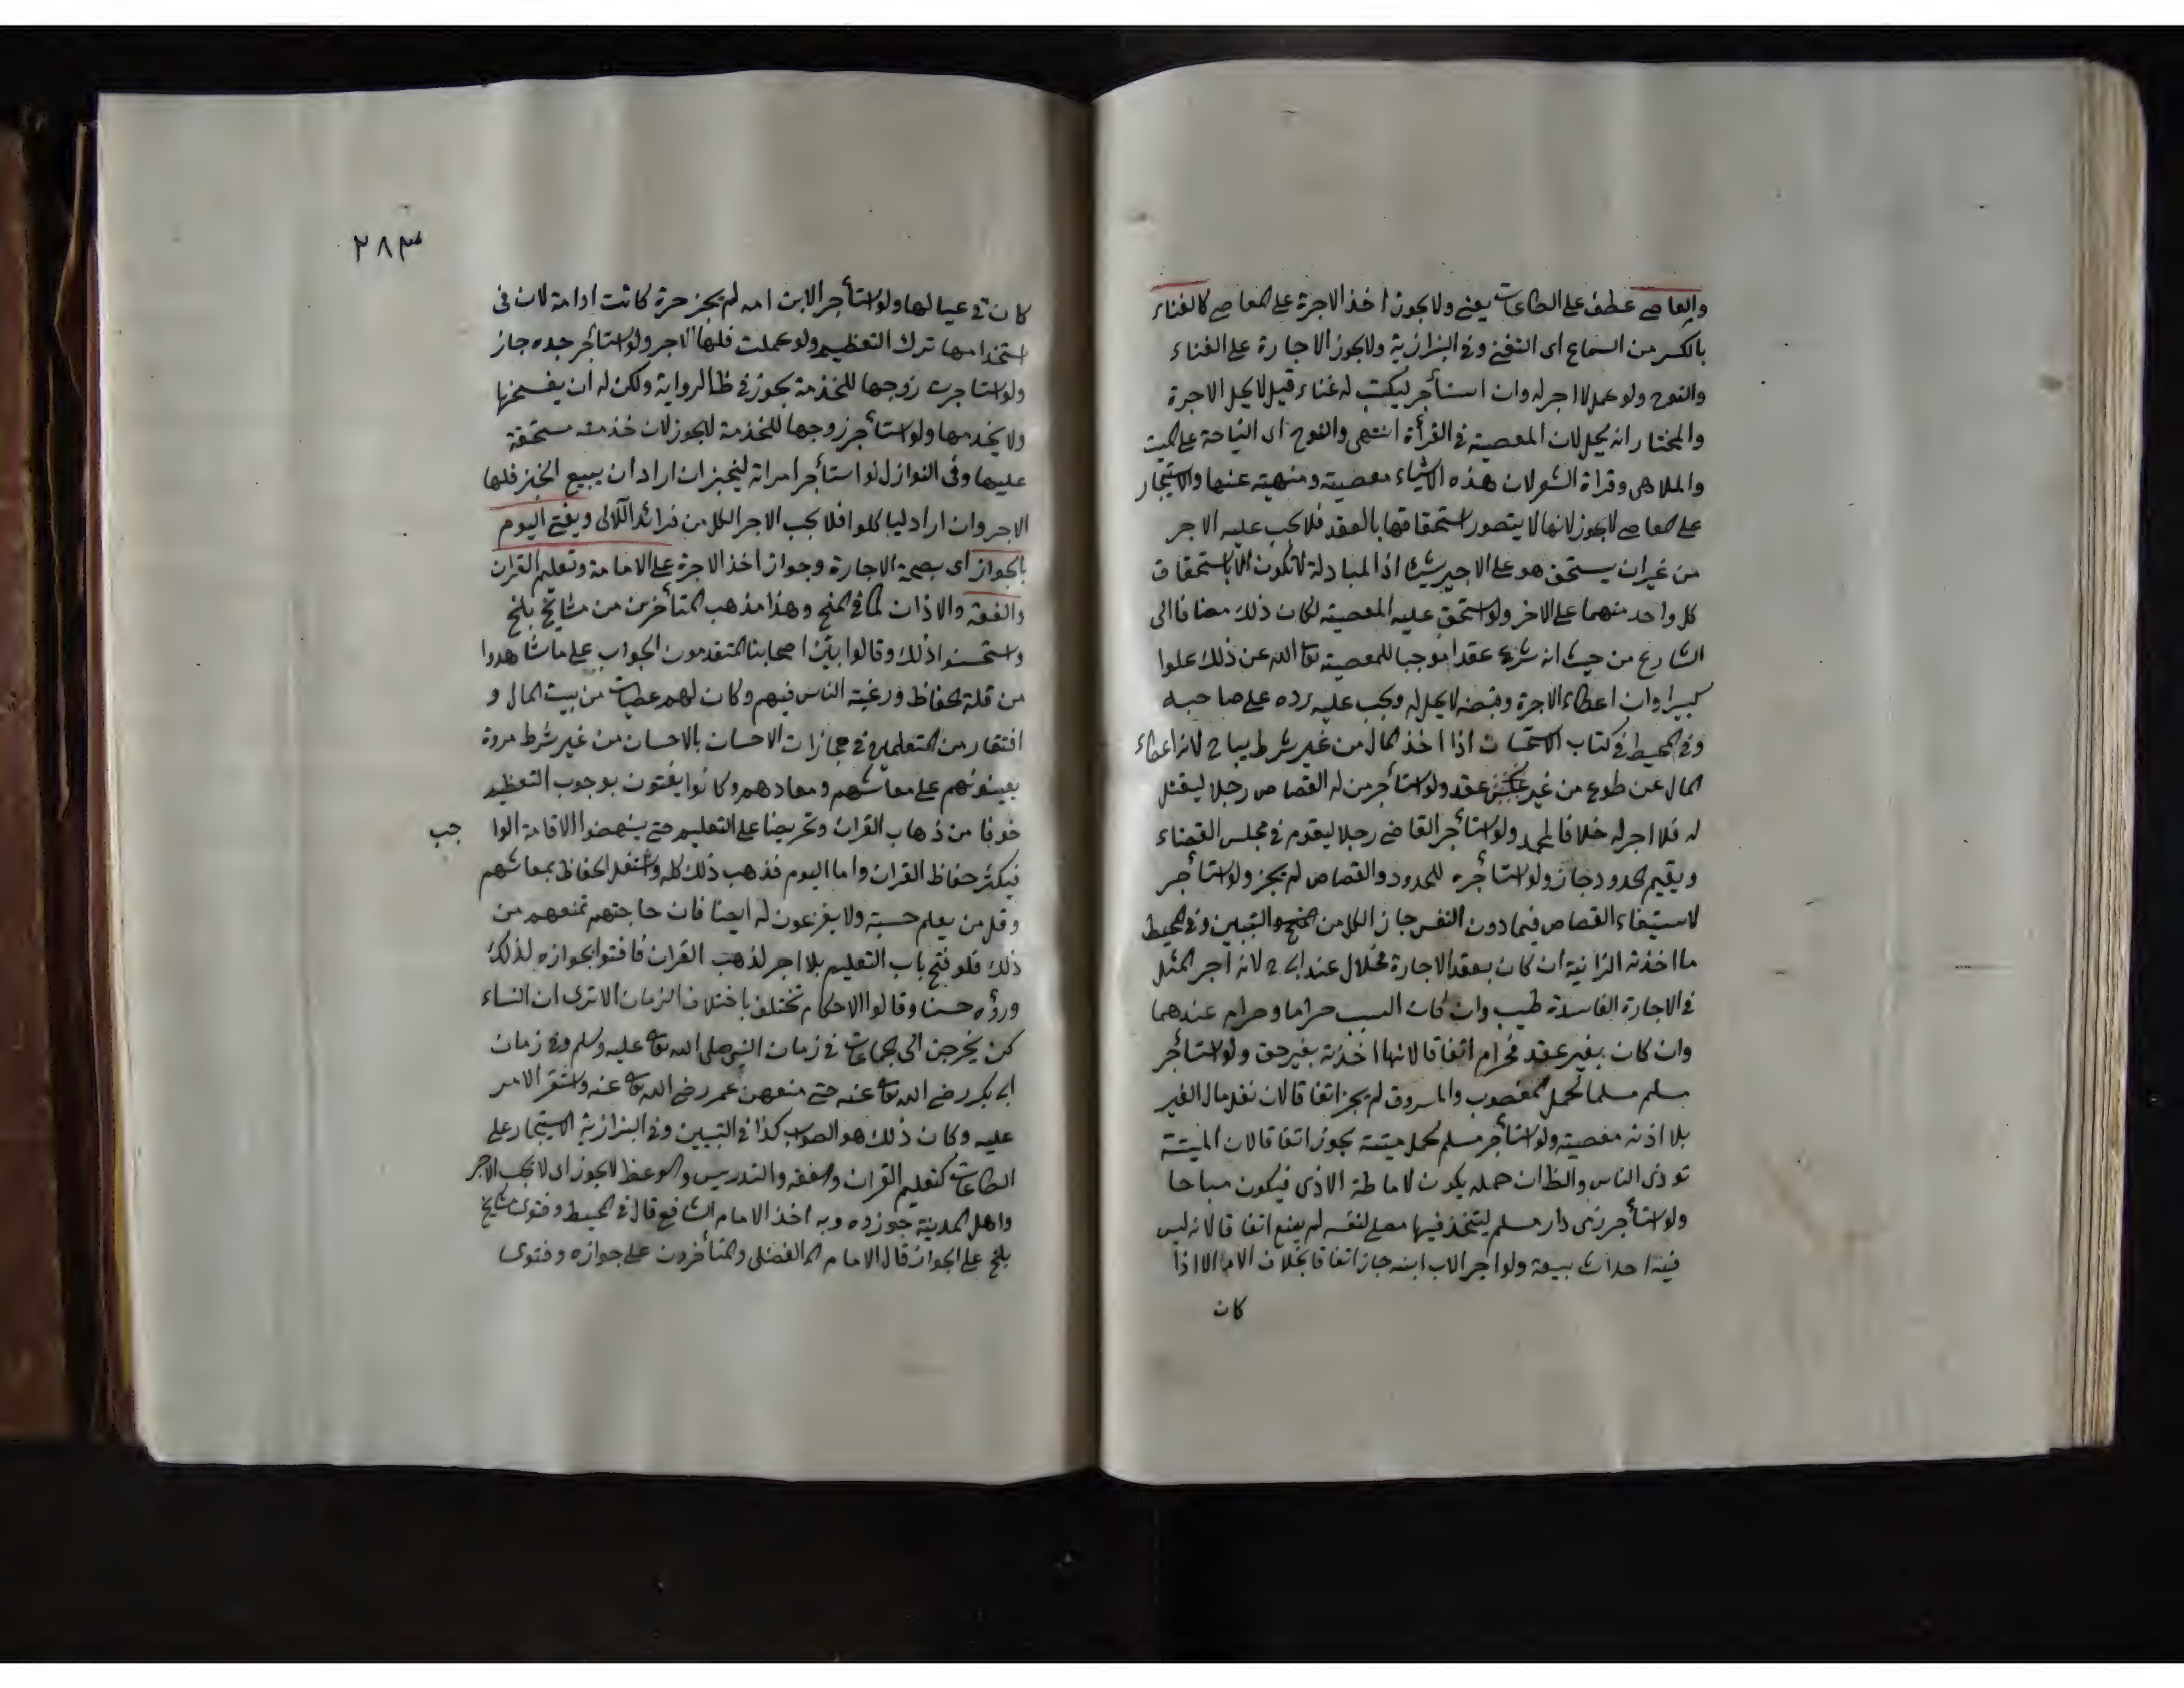 والمعاصى عطف على الطاعات يعنى ولا يجوز اخذ الاجرة على المعاصى كالغناء
بالكسر من السماع اى التغنى وفى البزازية ولا يجوز الاجارة على الغناء
والنوح ولو عمل لا اجر له وان استأجر ليكتب له غناء قيل لا يحل الاجرة
والمختار انه يحل لان المعصية فى القرأة انتهى والنوح اى النياحة على الميت
والملاهى وقراة الشعر لان هذه الاشياء معصية ومنهية عنها والاستيجار
على المعاصى لا يجوز لانها لا يتصور استحقاقها بالعقد فلا يجب عليه الاجر
من غير ان يستحق هو على الاجير شيئا اذ المبادلة لا تكون الا باستحقاق
كل واحد منهما على الاخر ولو استحق عليه المعصية لكان ذلك مضافا الى
الشارع من حيث انه شرع عقدا موجبا للمعصية تعالى الله عن ذلك علوا
كبيرا وان اعطاه الاجرة وقبضه لا يحل له ويجب عليه رده على صاحبه
وفى المحيط فى كتاب الاستحسان اذا اخذ المال من غير شرط يباح لانه اعطاء
المال عن طوع من غير عقد ولو استأجر من له القصاص رجلا ليقتل
له فلا اجر له خلافا لمحمد ولو استأجر القاضى رجلا ليقوم فى مجلس القضاء
ويقيم الحدود جاز ولو استأجره للحدود والقصاص لم يجز ولو استأجر
لاستيفاء القصاص فيما دون النفس جاز الكل من المنح والتبيين وفى المحيط
ما اخذته الزانية ان كان بعقد الاجارة فحلال عند ابى ح لانه اجر المثل
فى الاجارة الفاسدة طيب وان كان السبب حراما وحرام عندهما
وان كان بغير عقد فحرام اتفاقا لانها اخذته بغير حق ولو استأجر
مسلم مسلما لحمل المغصوب والمسروق لم يجز اتفاقا لان نقل مال الغير
بلا اذنه معصية ولو استأجر مسلم لحمل ميتة يجوز اتفاقا لان الميتة
توذى الناس والظ ان حمله يكون لاماطة الاذى فيكون مباحا
ولو استأجر ذمى دار مسلم ليتخذ فيها مصلى لنفسه لم يمنع اتفاقا لانه ليس
فيه احداث بيعة ولو اجر الاب ابنه جاز اتفاقا بخلاف الام الا اذا
كان
٢٨٣
كان فى عيالها ولو استأجر الابن امه لم يجز حرة كانت او امة لان فى
استخدامها ترك التعظيم ولو عملت فلها الاجر ولو استأجر جده جاز
ولو استاجرت زوجها للخدمة يجوز فى ظ الرواية ولكن له ان يفسخها
ولا يخدمها ولو استأجر زوجها للخدمة لا يجوز لان خدمته مستحقة
عليها وفى النوازل لو استأجر امراته ليخبز ان اراد ان يبيع الخبز فلها
الاجر وان اراد لياكلوا فلا يجب الاجر الكل من فرائد اللآلى ويفتى اليوم
بالجواز اى بصحة الاجارة وجواز اخذ الاجرة على الامامة وتعليم القران
والفقه والاذان كما فى المنح وهذا مذهب المتأخرين من مشايخ بلخ
واستحسنوا ذلك وقالوا بنى اصحابنا المتقدمون الجواب على ما شاهدوا
من قلة الحفاظ ورغبة الناس فيهم وكان لهم عطيات من بيت المال و
افتقار من المتعلمين فى مجازات الاحسان بالاحسان من غير شرط مروة
يعينونهم على معاشهم ومعادهم وكانوا يفتون بوجوب التعظيم
خوفا من ذهاب القران وتحريضا على التعليم حتى ينهضوا الاقامة الوا جب
فيكثر حفاظ القران واما اليوم فذهب ذلك كله واشتغل الحفاظ بمعاشهم
وقل من يعلم حسبة ولا يفرغون له ايضا فان حاجتهم تمنعهم من
ذلك فلو فتح باب التعليم بلا اجر لذهب القران فافتوا بجوازه لذلك
ورؤه حسنا وقالوا الاحكام تختلف باختلاف الزمان الا ترى ان النساء
كن يخرجن الى الجماعات فى زمان النبى صلى الله تعالى عليه وسلم وفى زمان
ابى بكر رضى الله تعالى عنه حتى منعهن عمر رضى الله تعالى عنه واستقر الامر
عليه وكان ذلك هو الصواب كذا فى التبيين وفى البزازية الاستيجار على
الطاعات كتعليم القران والفقه والتدريس والوعظ لا يجوز اى لا يجب الاجر
واهل المدينة جوزوه وبه اخذ الامام الشافعى قال فى المحيط وفتوى مشايخ
بلخ على الجواز قال الامام الفضلى والمتأخرون على جوازه وفتوى